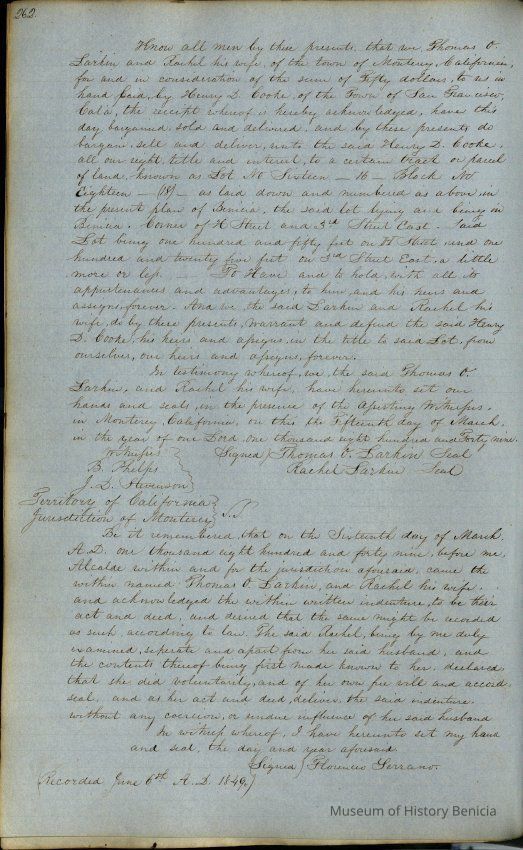 262.
Know all men by these presents, that we Thomas O.
Larkin and Rachel his wife, of the town of Monterey, California,
for and in consideration of the sum of Fifty dollars, to us in
hand paid, by Henry D. Cooke, of the Town of San Francisco,
Cala, the receipt whereof is hereby acknowledged, have this
day bargained sold and delivered, and by these presents do
bargain, sell and deliver, unto the said Henry D. Cooke,
all our right, title and interest, to a certain tract or parcel
of land, known as Lot No Sixteen — 16 — Block No
Eighteen — (18) — as laid down and numbered as above, in
the present plan of Benicia, the said lot lying and being in
Benicia. Corner of H Street and 3rd Street East. Said
Lot being one hundred and fifty feet on H Street and one
hundred and twenty five feet on 3rd Street East, a little
more or less. To Have and to hold, with all its
appurtenances and advantages, to him, and his heirs and
assigns, forever. And we the said Larkin and Rachel his
wife, do by these presents, warrant and defend the said Henry
D. Cooke, his heirs and assigns, in the title to said Lot, from
ourselves, our heirs and assigns, forever.
In testimony whereof, we, the said Thomas O.
Larkin, and Rachel his wife, have hereunto set our
hands and seals, in the presence of the Attesting Witnesses,
in Monterey, California, on this the Fifteenth day of March,
in the year of our Lord one thousand eight hundred and Forty nine.
Witnesses Signed Thomas O. Larkin Seal
B. Phelps Rachel Larkin Seal
J. D. Stevenson
Territory of California
Jurisdiction of Monterey S.S.
Be it remembered, that on the Sixteenth day of March
A.D. one thousand eight hundred and forty nine, before me,
Alcalde within and for the jurisdiction aforesaid, came the
within named Thomas O. Larkin, and Rachel his wife,
and acknowledged the within written indenture, to be their
act and deed, and desired that the same might be recorded
as such, according to law. The said Rachel, being by me duly
examined, seperate and apart from her said husband, and
the contents thereof being first made known to her, declared
that she did voluntarily, and of her own free will and accord,
seal, and as her act and deed, deliver, the said indenture
without any coercion, or undue influence of her said husband
In witness whereof, I have hereunto set my hand
and seal, the day and year aforesaid.
Signed Florencio Serrano.
(Recorded June 6th A.D. 1849.)
Museum of History Benicia